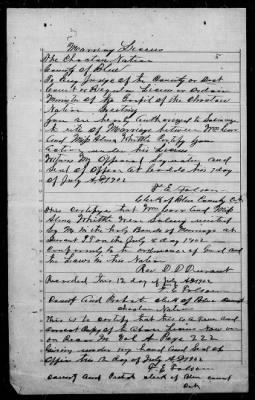 Marriag Licens
The Choctaw Nation
County of Blue
To Any Judge of the County or Dist
Court or Regular Licens or Ordain
Minister of the Gospel of the Choctaw
Nation Greeting
you are hereby Authorized to Solemnize
the rite of Marriage between Wm
And Miss Whittle Certify your
Action under this License
Witness My Official Signature and
Seal of Office at Caddo this 7 day
of July AD 1902
F E Folsom
Clerk of Blue County C.N.
This Certifys that Wm And Miss
Whittle Was Solemly united
by Me in the holy Bonds of Marriage at
on the July 8 day 1902
Conforming to the ordinance of God And
the Laws to this Nation
Rev D D Durant
Recorded this 12 day of July AD 1902
F E Folsom
County And Probate Clerk of Blue County
Choctaw Nation
This is to Certify that this is a True And
Correct Copy of the Above License Now on
on Record Vol A Page 222
Given under my hand And Seal of
Office this 12 day of July AD 1902
F E Folsom
County And Probate Clerk of Blue County
C.N.